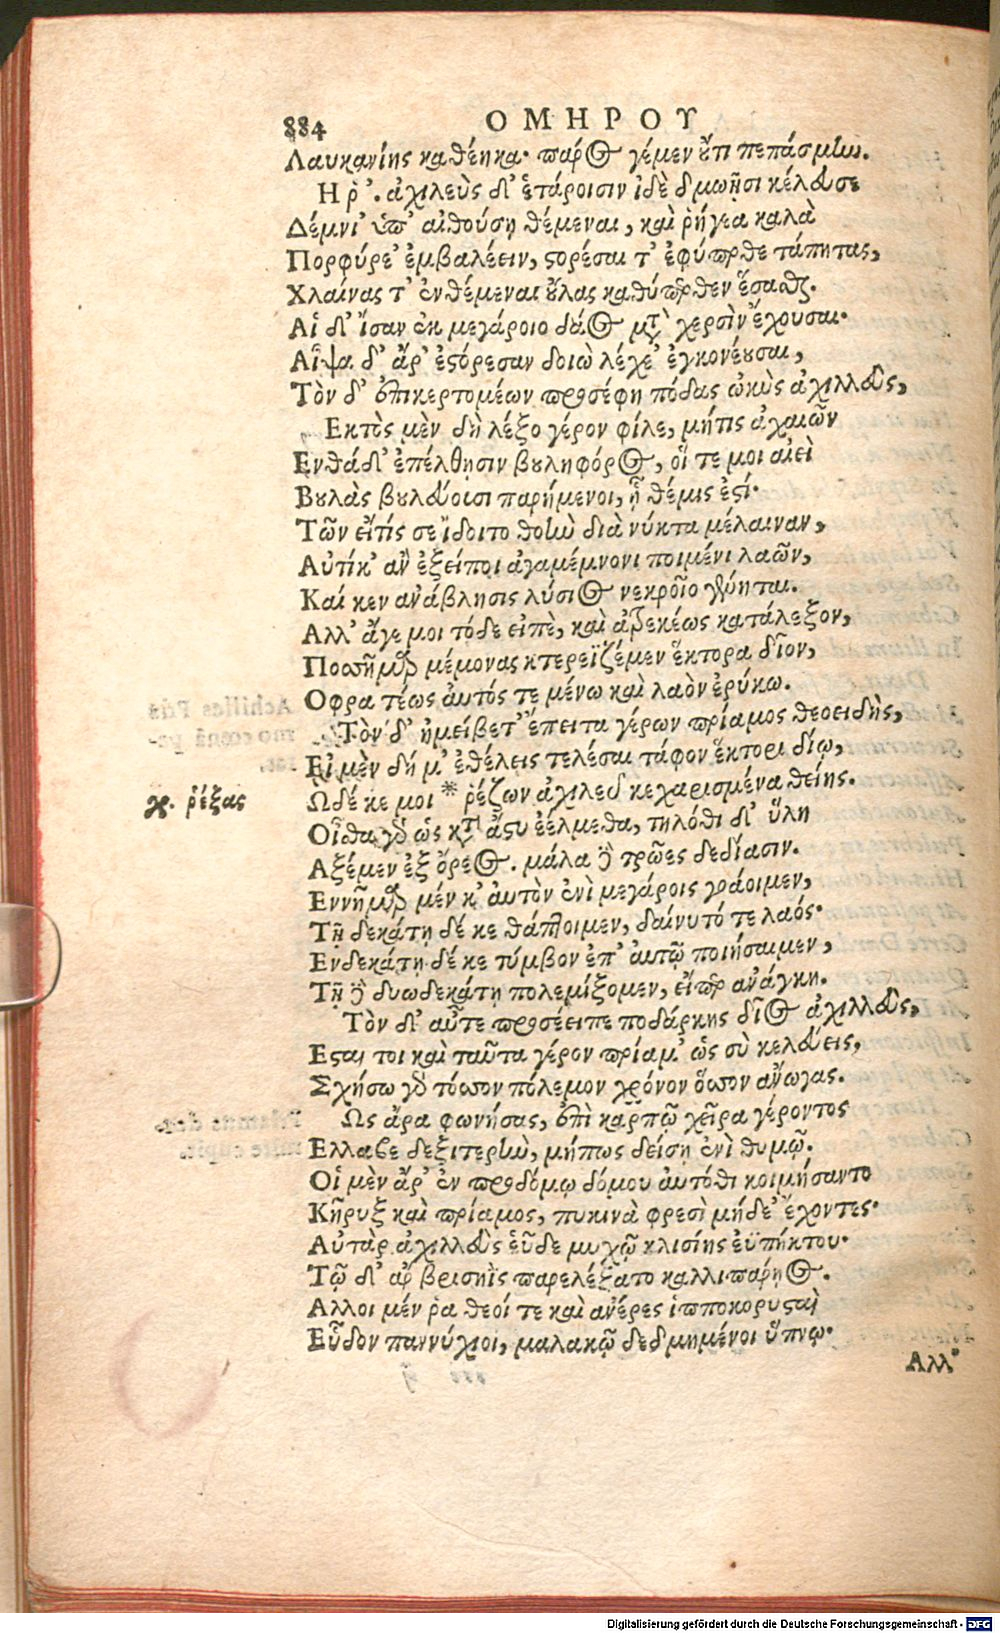 884 ΟΜΗΡΟΥ
Λαυκανίης καθέηκα· πάρος γέμεν ὔτι πεπάσμην.
Η ῥ'. ἀχιλεὺς δ' ἑτάροισιν ἰδὲ δμωῇσι κέλευσε
Δέμνι' ὑπ' αἰθούσῃ θέμεναι, καὶ ῥήγεα καλὰ
Πορφύρε' ἐμβαλέειν, ϛορέσαι τ' ἐφύπερθε τάπητας,
Χλαίνας τ' ἐνθέμεναι ὔλας καθύπερθεν ἕσασθαι.
Αἱ δ' ἴσαν ἐκ μεγάροιο δάος μετὰ χερσὶν ἔχουσαι·
Αἶψα δ' ἄρ' ἐϛόρεσαν δοιὼ λέχε' ἐγκονέυσαι,
Τὸν δ' ἐπικερτομέων προσέφη πόδας ὠκὺς ἀχιλλεὺς,
Εκτὸς μὲν δὴ λέξο γέρον φίλε, μήτις ἀχαιῶν
Ενθάδ' ἐπέλθησιν βυληφόρος, οἵ τε μοι αἰεὶ
Βυλὰς βυλεύουσι παρήμενοι, ᾗ θέμις ἐϛί·
Τῶν εἴτίς σε ἴδοιτο θοὴν διὰ νύκτα μέλαιναν,
Αὐτίκ' ἂν ἐξείποι ἀγαμέμνονι ποιμένι λαῶν,
Καί κεν ἀνάβλησις λύσιος νεκροῖο γένηται.
Αλλ' ἄγε μοι τόδε εἰπὲ, καὶ ἀτρεκέως κατάλεξον,
Ποσσῆμαρ μέμονας κτερεϊζέμεν ἕκτορα δῖον,
Οφρα τέως ἀυτός τε μένω καὶ λαὸν ἐρύκω.
Τὸν δ' ἠμείβετ' ἔπειτα γέρων πρίαμος θεοειδὴς,
Εἰ μὲν δή μ' ἐθέλεις τελέσαι τάφον ἕκτορι δίῳ,
Ωδέ κε μοι * ῥέζων ἀχιλεῦ κεχαρισμένα θείης.
γρ. ῥέξας
Οἶσθα γὰρ ὡς κατὰ ἄϛυ ἐέλμεθα, τηλόθι δ' ὕλη
Αξέμεν ἐξ ὄρεος. μάλα δὲ τρῶες δεδίασιν.
Εννῆμαρ μέν κ' ἀυτὸν ἐνὶ μεγάροις γοάοιμεν,
Τῇ δεκάτῃ δέ κε θάπτοιμεν, δαίνυτό τε λαός·
Ενδεκάτῃ δέ κε τύμβον ἐπ' ἀυτῷ ποιήσαιμεν,
Τῇ δὲ δυωδεκάτῃ πολεμίξομεν, εἴπερ ἀνάγκη.
Τὸν δ' αὖτε προσέειπε ποδάρκης δῖος ἀχιλλεὺς,
Εϛαι τοι καὶ ταῦτα γέρον πρίαμ' ὡς σὺ κελεύεις,
Σχήσω γὰρ τόσσον πόλεμον χρόνον ὅσσον ἄνωγας.
Ως ἄρα φωνήσας, ἐπὶ καρπῷ χεῖρα γέροντος
Ελλαβε δεξιτερὴν, μήπως δείσῃ ἐνὶ θυμῷ.
Οἱ μὲν ἄρ' ἐν προδόμῳ δόμου ἀυτόθι κοιμήσαντο
Κῆρυξ καὶ πρίαμος, πυκινὰ φρεσὶ μήδε' ἔχοντες·
Αὐτὰρ ἀχιλλεὺς εὗδε μυχῷ κλισίης ἐϋπήκτου·
Τῷ δ' ἄρ βρισηῒς παρελέξατο καλλιπάρῃος.
Αλλοι μέν ῥα θεοί τε καὶ ἀνέρες ἱπποκορυϛαὶ
Εὗδον παννύχιοι, μαλακῷ δεδμημένοι ὕπνῳ·
Αλλ'
Digitalisierung gefördert durch die Deutsche Forschungsgemeinschaft - DFG